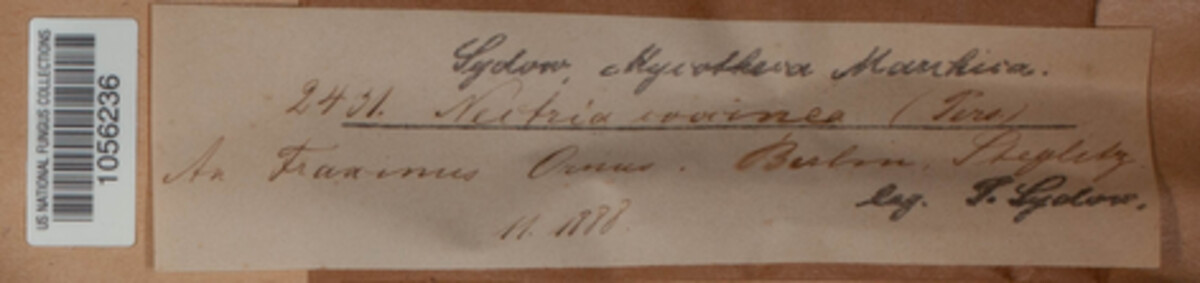 US NATIONAL FUNGUS COLLECTIONS
1056236
Sydow, Mycotheca Marchica.
2431. Nectria coccinea (Pers)
An Fraxinus Ornus. Berlin, Steglitz
leg. P. Sydow.
11. 1888.